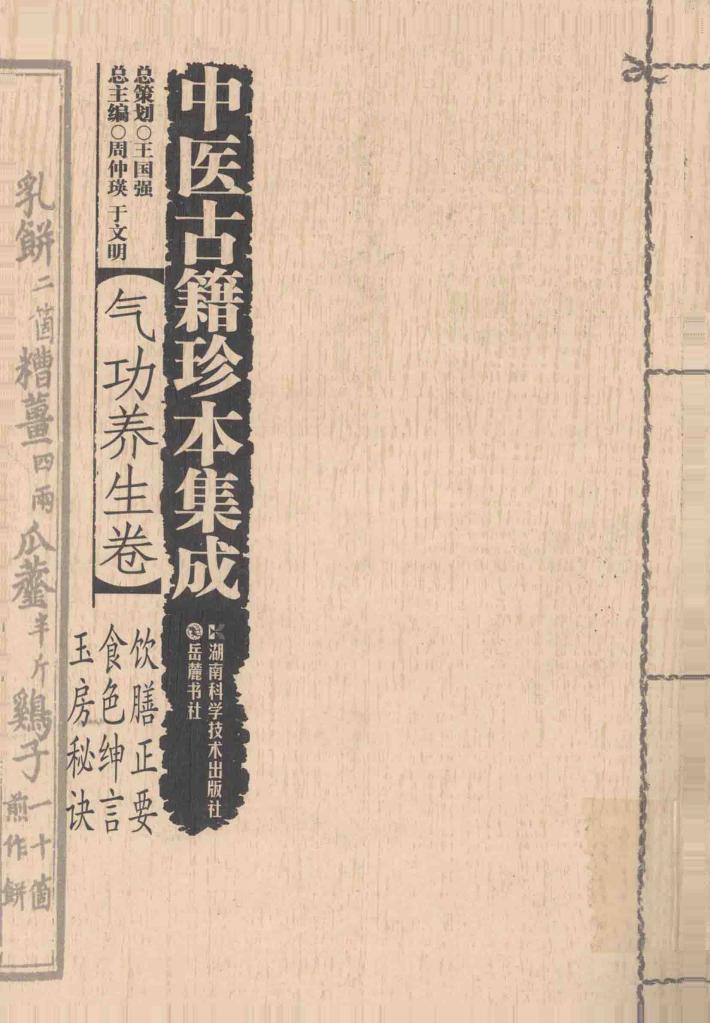 中医古籍珍本集成
湖南科学技术出版社
岳麓书社
总策划○王国强
总主编○周仲瑛 于文明
气功养生卷
饮膳正要
食色绅言
玉房秘诀
乳餅二箇糟薑四兩瓜虀半斤鷄子一十箇
煎作餅